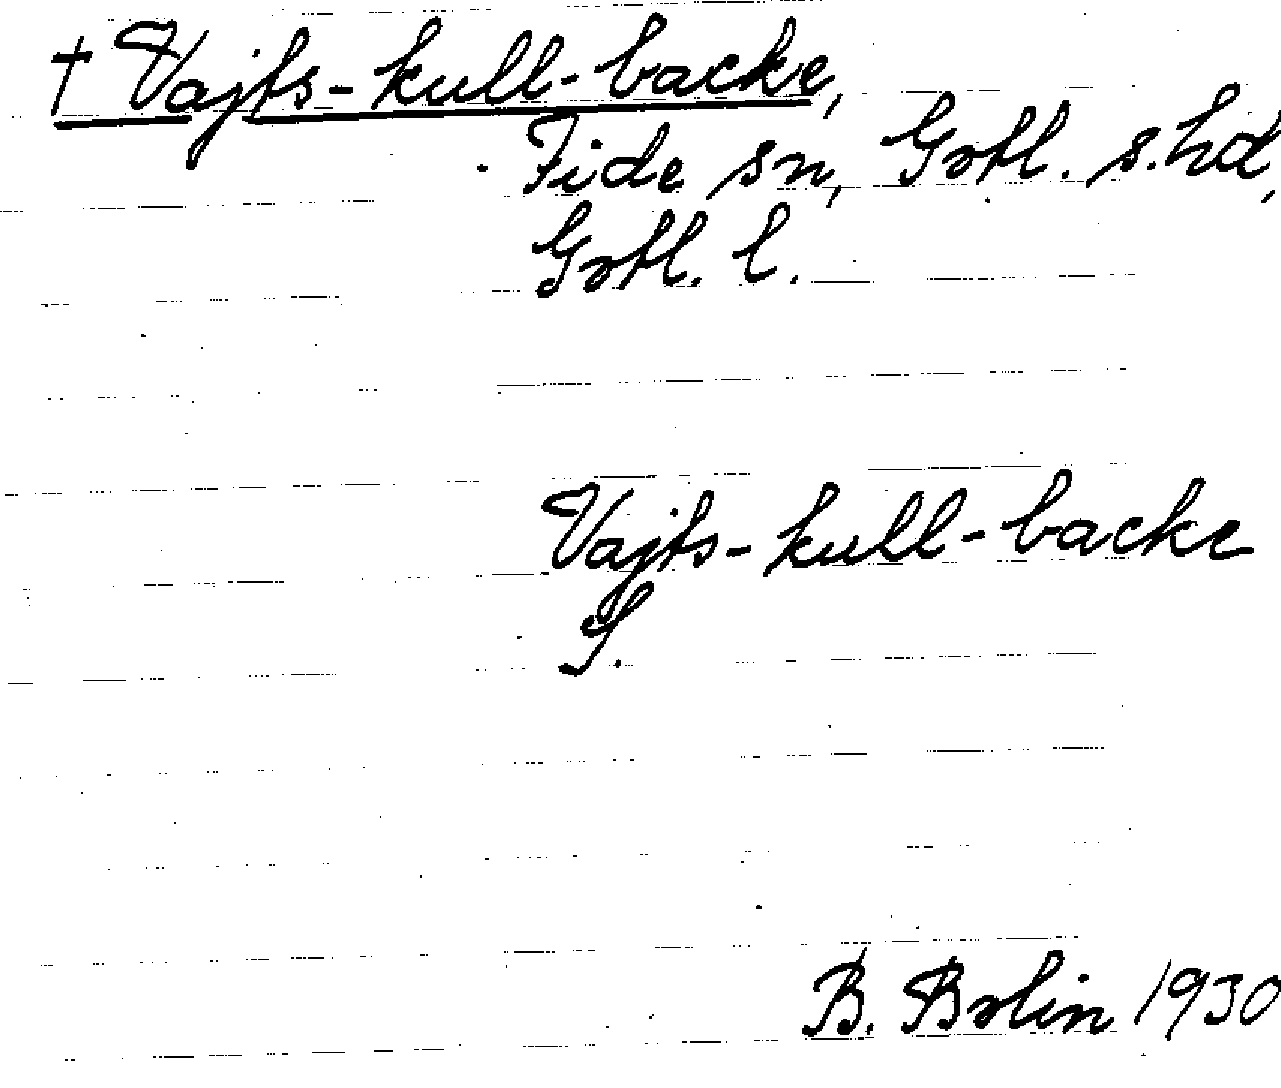 † Vajfs-kull-backe,
Fide sn, Gotl. s. hd,
Gotl. l.
Vajfs-kull-backe
S.
B. Bolin 1930